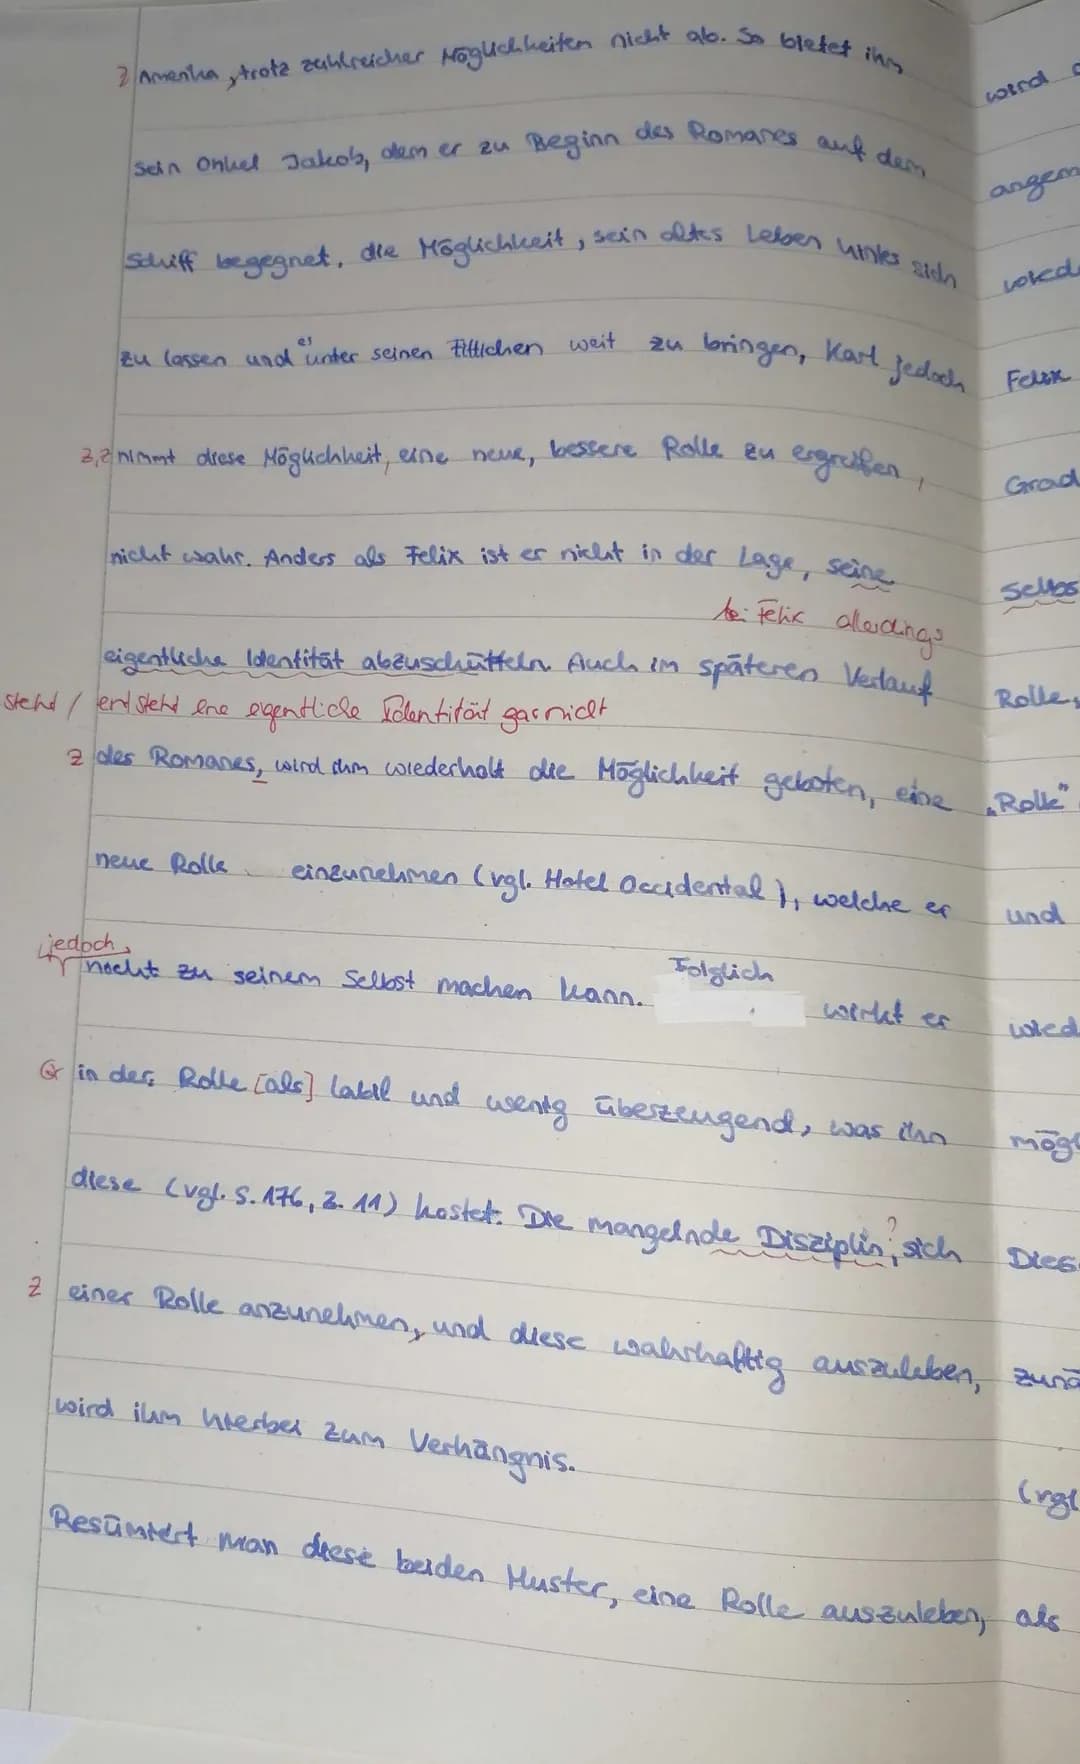 Z Amerika, trotz zahlreicher Möglichkeiten nicht ab. So bietet ihm
sein Onkel Jakob, dem er zu Beginn des Romanes auf dem
Schiff begegnet, die Möglichkeit, sein altes Leben hinter sich
zu lassen und es unter seinen Fittichen weit zu bringen, Karl jedoch
Z,Z nimmt diese Möglichkeit, eine neue, bessere Rolle zu ergreifen,
nicht wahr. Anders als Felix ist er nicht in der Lage, seine
bei Felix allerdings
eigentliche Identität abzuschütteln. Auch im späteren Verlauf
steht / entsteht eine eigentliche Identität gar nicht
Z des Romanes, wird ihm wiederholt die Möglichkeit geboten, eine
neue Rolle einzunehmen (vgl. Hotel Occidental), welche er
jedoch,
nicht zu seinem Selbst machen kann. Folglich wirkt er
Gr in der Rolle [als] labil und wenig überzeugend, was ihn
diese (vgl. S. 176, Z. 11) kostet. Die mangelnde Disziplin, ? sich
Z einer Rolle anzunehmen, und diese wahrhaftig auszuleben,
wird ihm hierbei zum Verhängnis.
Resümiert man diese beiden Muster, eine Rolle auszuleben, als
wird
angem
Felix
Grad
Selbs
Rolle,
„Rolle"
und
wied
mögl
Dies
zunä
(vgl